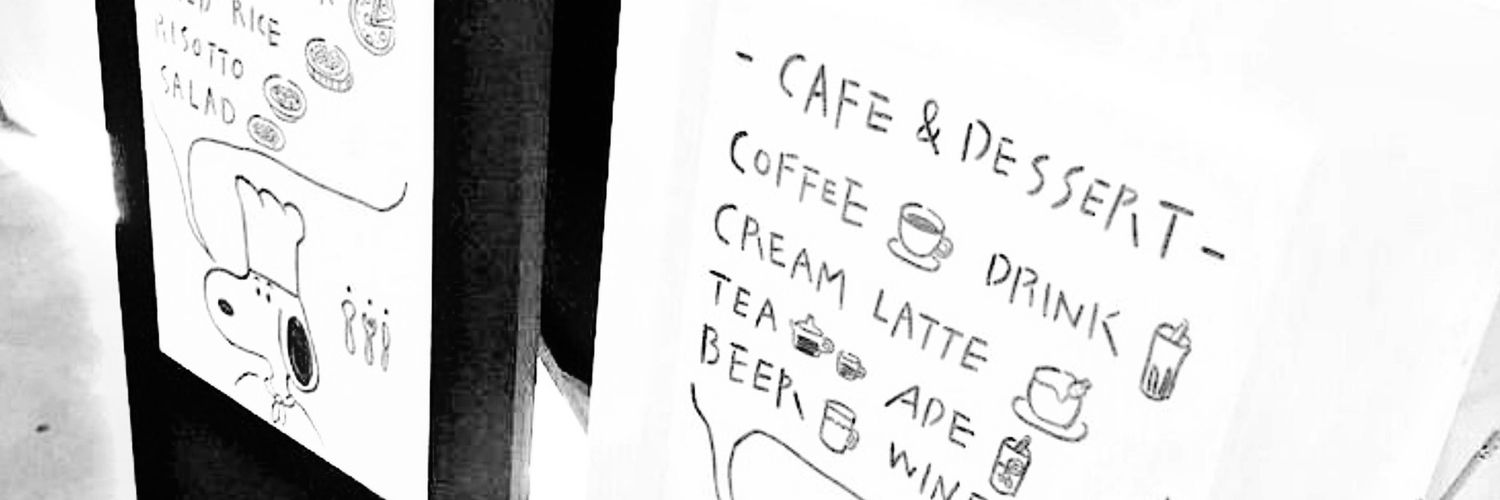 RICE
RISOTTO
SALAD
- CAFE & DESSERT -
COFFEE DRINK
CREAM LATTE
TEA ADE
BEER WINE